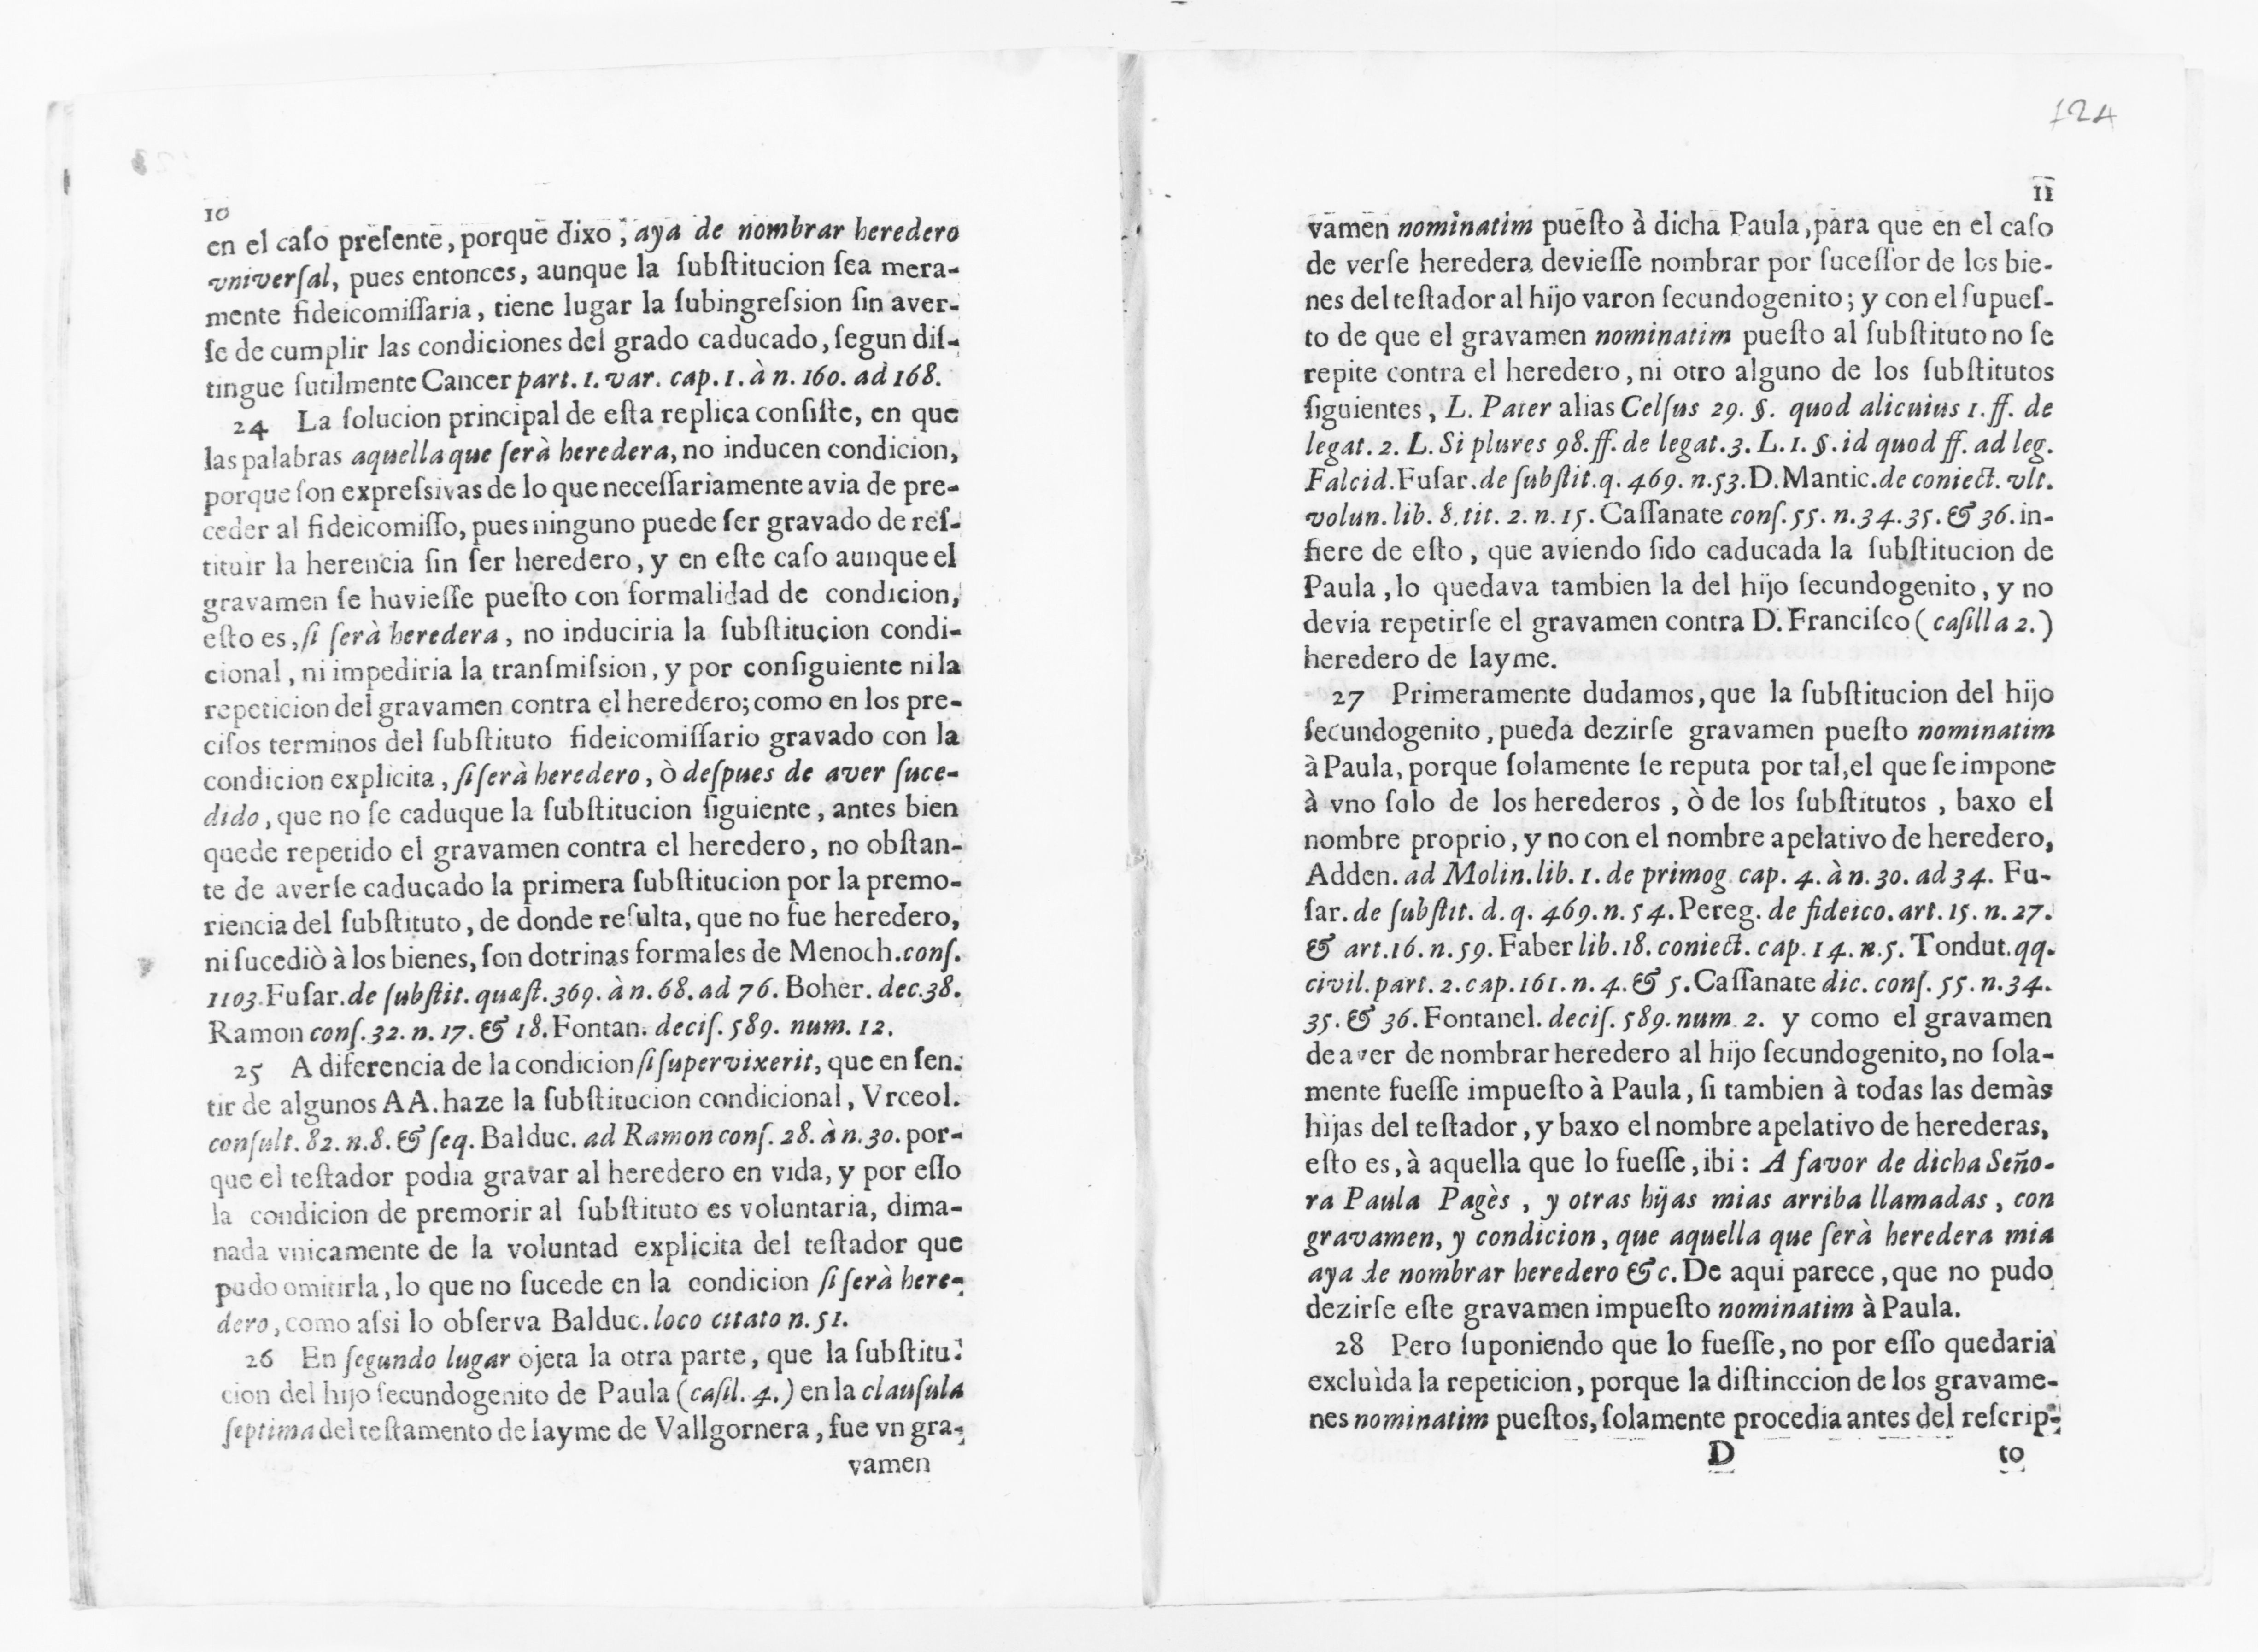 10
en el caſo preſente, porque dixo, aya de nombrar heredero
vniverſal, pues entonces, aunque la ſubſtitucion ſea mera-
mente fideicomiſſaria, tiene lugar la ſubingreſsion ſin aver-
ſe de cumplir las condiciones del grado caducado, ſegun diſ-
tingue ſutilmente Cancer part. 1. var. cap. 1. à n. 160. ad 168.
24 La ſolucion principal de eſta replica conſiſte, en que
las palabras aquella que ſerà heredera, no inducen condicion,
porque ſon expreſsivas de lo que neceſſariamente avia de pre-
ceder al fideicomiſſo, pues ninguno puede ſer gravado de reſ-
tituir la herencia ſin ſer heredero, y en eſte caſo aunque el
gravamen ſe huvieſſe pueſto con formalidad de condicion,
eſto es, ſi ſerà heredera, no induciria la ſubſtitucion condi-
cional, ni impediria la tranſmiſsion, y por conſiguiente ni la
repeticion del gravamen contra el heredero; como en los pre-
ciſos terminos del ſubſtituto fideicomiſſario gravado con la
condicion explicita, ſi ſerà heredero, ò deſpues de aver ſuce-
dido, que no ſe caduque la ſubſtitucion ſiguiente, antes bien
quede repetido el gravamen contra el heredero, no obſtan-
te de averſe caducado la primera ſubſtitucion por la premo-
riencia del ſubſtituto, de donde reſulta, que no fue heredero,
ni ſucediò à los bienes, ſon dotrinas formales de Menoch. conſ.
1103. Fuſar. de ſubſtit. quæſt. 369. à n. 68. ad 76. Boher. dec. 38.
Ramon conſ. 32. n. 17. & 18. Fontan. deciſ. 589. num. 12.
25 A diferencia de la condicion ſi ſupervixerit, que en ſen-
tir de algunos AA. haze la ſubſtitucion condicional, Vrceol.
conſult. 82. n. 8. & ſeq. Balduc. ad Ramon conſ. 28. à n. 30. por-
que el teſtador podia gravar al heredero en vida, y por eſſo
la condicion de premorir al ſubſtituto es voluntaria, dima-
nada vnicamente de la voluntad explicita del teſtador que
pudo omitirla, lo que no ſucede en la condicion ſi ſerà here-
dero, como aſsi lo obſerva Balduc. loco citato n. 51.
26 En ſegundo lugar ojeta la otra parte, que la ſubſtitu-
cion del hijo ſecundogenito de Paula (caſil. 4.) en la clauſula
ſeptima del teſtamento de Iayme de Vallgornera, fue vn gra-
vamen
124
11
vamen nominatim pueſto à dicha Paula, para que en el caſo
de verſe heredera devieſſe nombrar por ſuceſſor de los bie-
nes del teſtador al hijo varon ſecundogenito; y con el ſupueſ-
to de que el gravamen nominatim pueſto al ſubſtituto no ſe
repite contra el heredero, ni otro alguno de los ſubſtitutos
ſiguientes, L. Pater alias Celſus 29. §. quod alicuius 1. ff. de
legat. 2. L. Si plures 98. ff. de legat. 3. L. 1. §. id quod ff. ad leg.
Falcid. Fuſar. de ſubſtit. q. 469. n. 53. D. Mantic. de coniect. vlt.
volun. lib. 8. tit. 2. n. 15. Caſſanate conſ. 55. n. 34. 35. & 36. in-
fiere de eſto, que aviendo ſido caducada la ſubſtitucion de
Paula, lo quedava tambien la del hijo ſecundogenito, y no
devia repetirſe el gravamen contra D. Franciſco (caſilla 2.)
heredero de Iayme.
27 Primeramente dudamos, que la ſubſtitucion del hijo
ſecundogenito, pueda dezirſe gravamen pueſto nominatim
à Paula, porque ſolamente ſe reputa por tal, el que ſe impone
à vno ſolo de los herederos, ò de los ſubſtitutos, baxo el
nombre proprio, y no con el nombre apelativo de heredero,
Adden. ad Molin. lib. 1. de primog. cap. 4. à n. 30. ad 34. Fu-
ſar. de ſubſtit. d. q. 469. n. 54. Pereg. de fideico. art. 15. n. 27.
& art. 16. n. 59. Faber lib. 18. coniect. cap. 14. n. 5. Tondut. qq.
civil. part. 2. cap. 161. n. 4. & 5. Caſſanate dic. conſ. 55. n. 34.
35. & 36. Fontanel. deciſ. 589. num. 2. y como el gravamen
de aver de nombrar heredero al hijo ſecundogenito, no ſola-
mente fueſſe impueſto à Paula, ſi tambien à todas las demàs
hijas del teſtador, y baxo el nombre apelativo de herederas,
eſto es, à aquella que lo fueſſe, ibi: A favor de dicha Seño-
ra Paula Pagès, y otras hijas mias arriba llamadas, con
gravamen, y condicion, que aquella que ſerà heredera mia
aya de nombrar heredero &c. De aqui parece, que no pudo
dezirſe eſte gravamen impueſto nominatim à Paula.
28 Pero ſuponiendo que lo fueſſe, no por eſſo quedaria
excluìda la repeticion, porque la diſtinccion de los gravame-
nes nominatim pueſtos, ſolamente procedia antes del reſcrip-
D to